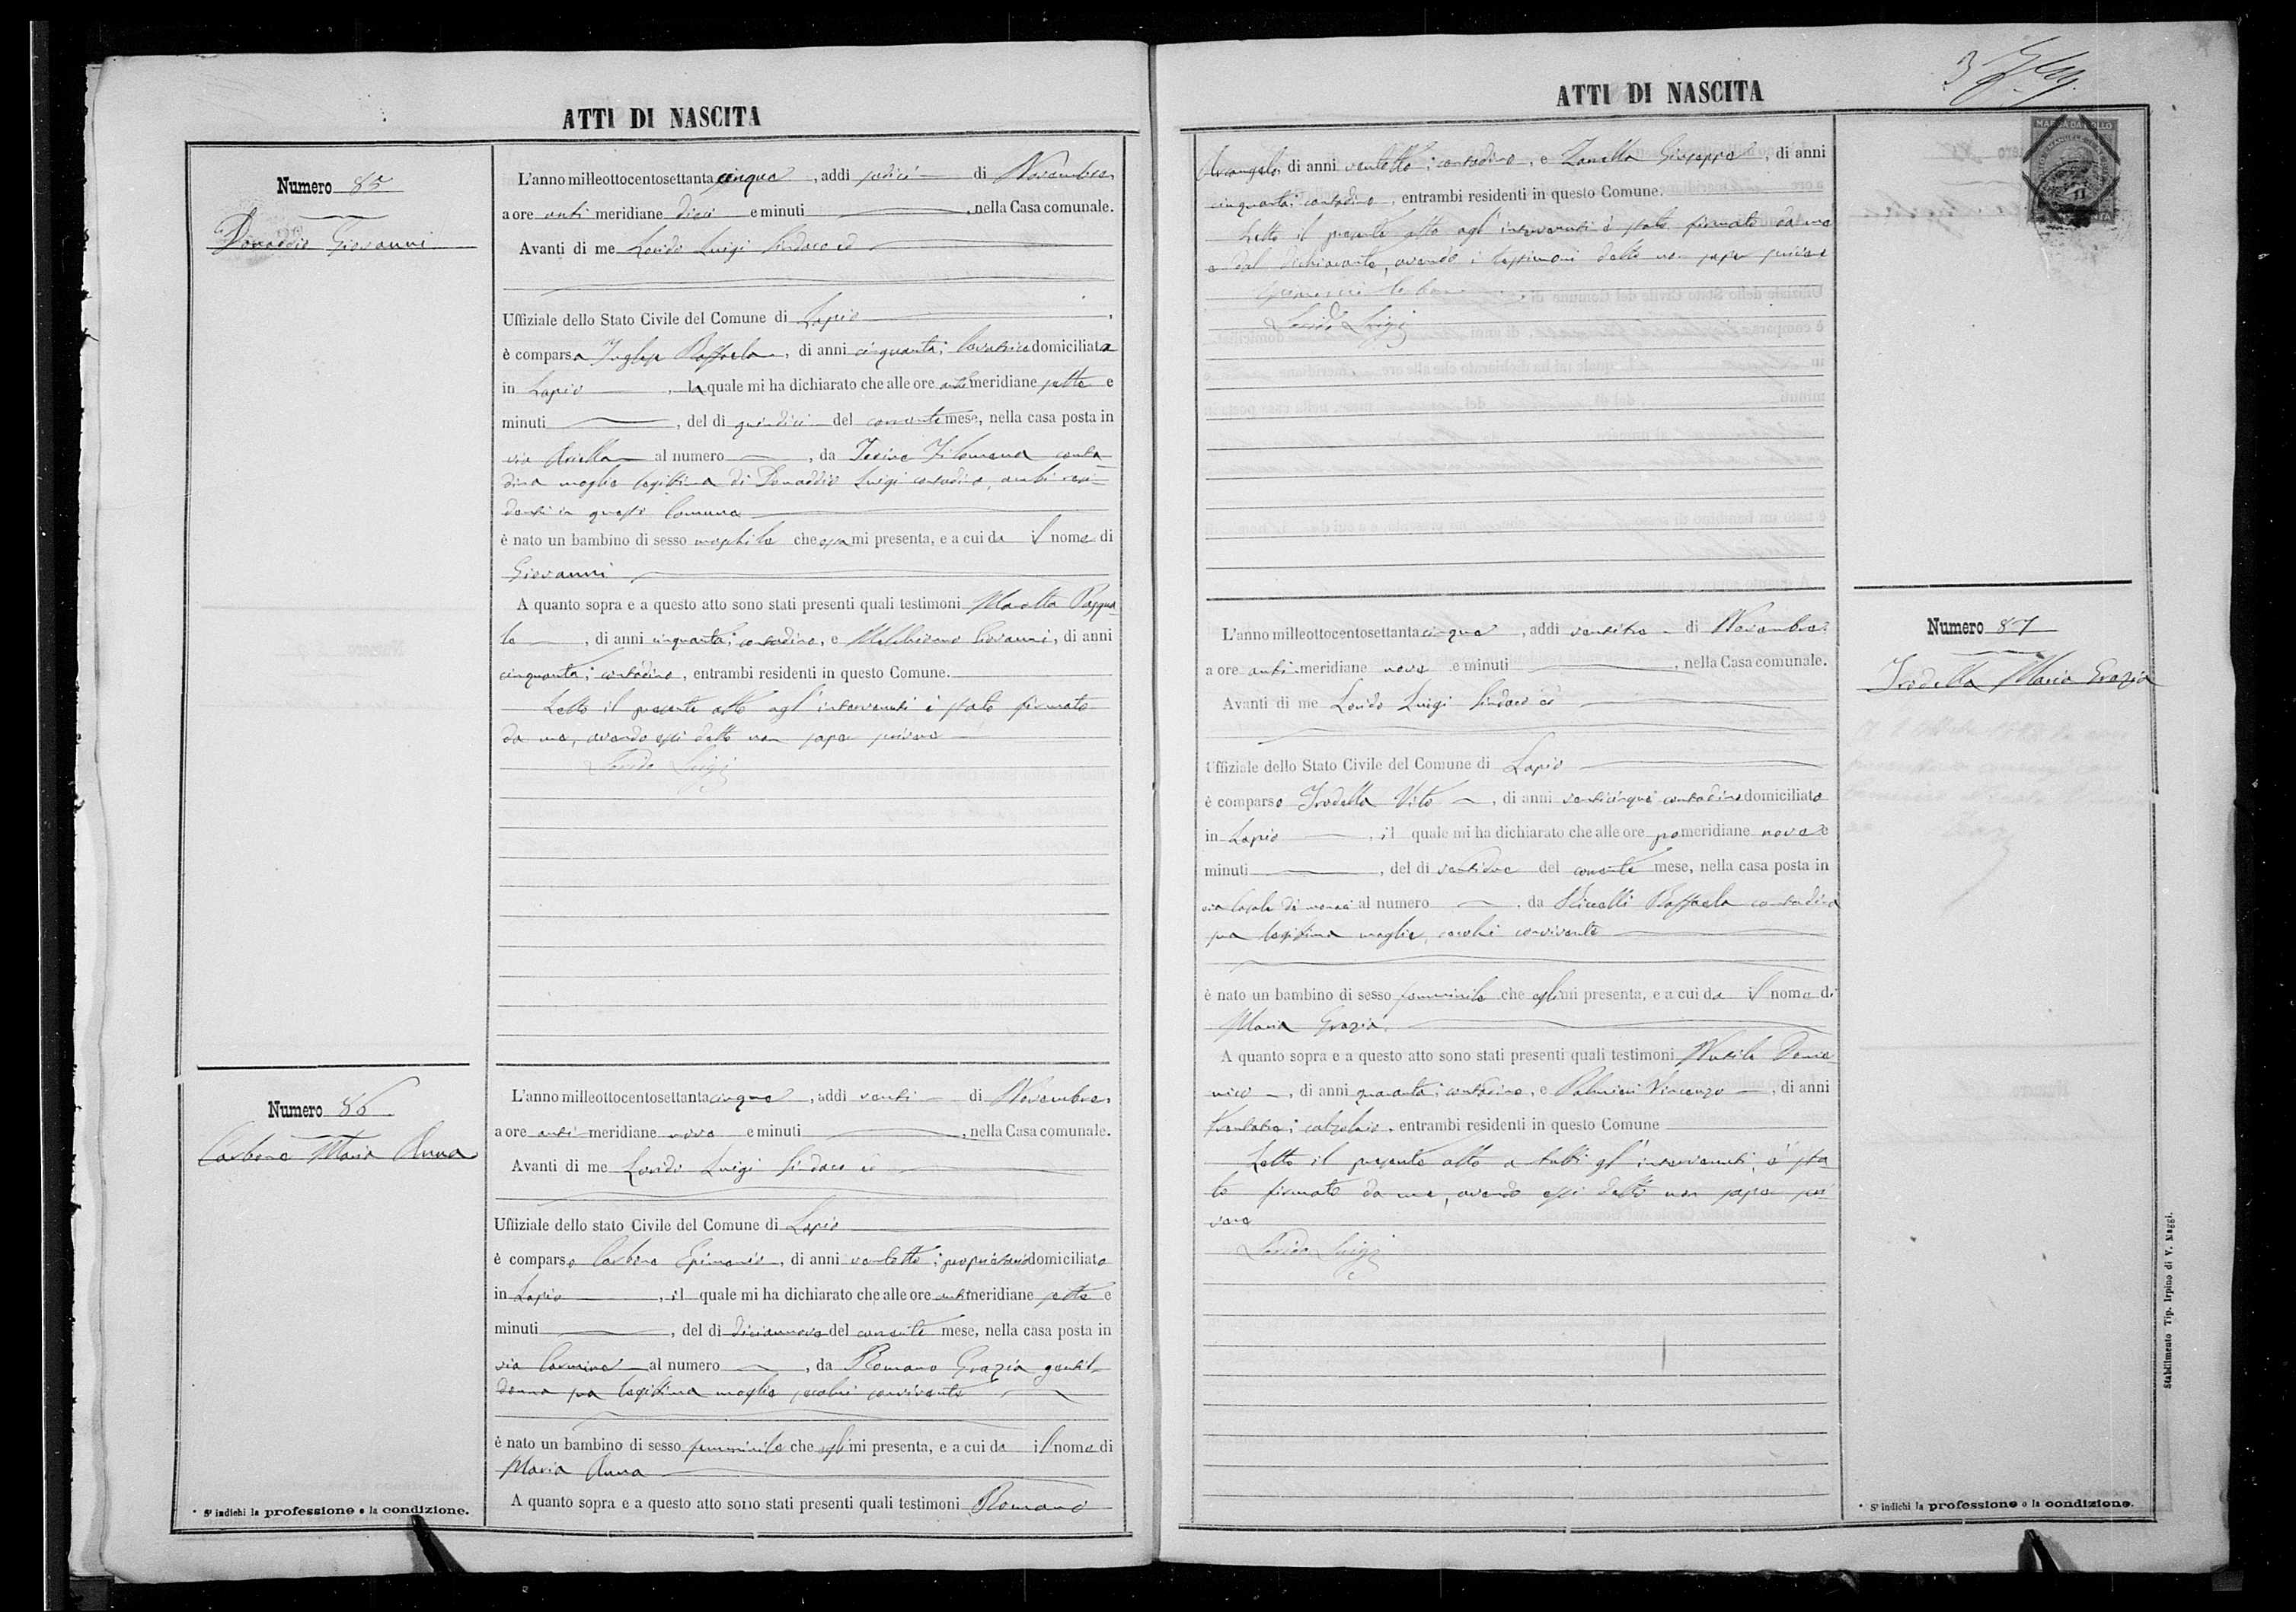 ATTI DI NASCITA
Numero 85
Donaddio Giovanni
L'anno milleottocentosettantacinque, addi sedici di Novembre,
a ore anti meridiane dieci e minuti , nella Casa comunale.
Avanti di me Lorido Luigi Sindaco ed
Uffiziale dello Stato Civile del Comune di Lapio
è comparsa Raffaela, di anni cinquanta; levatrice domiciliata
in Lapio , la quale mi ha dichiarato che alle ore anti meridiane sette e
minuti , del dì quindici del corrente mese, nella casa posta in
via Ariella al numero , da Filomena conta-
dina moglie legittima di Donaddio Luigi contadino, ambi resi-
denti in questo Comune
è nato un bambino di sesso maschile che essa mi presenta, e a cui da il nome di
Giovanni
A quanto sopra e a questo atto sono stati presenti quali testimoni Pasqua-
le , di anni cinquanta; contadino, e Giovanni, di anni
cinquanta; contadino, entrambi residenti in questo Comune.
Letto il presente atto agl'intervenuti è stato firmato
da me, avendo essi detto non saper scrivere
Lorido Luigi
Numero 86
Carbone Maria Anna
L'anno milleottocentosettantacinque, addi venti di Novembre,
a ore anti meridiane nove e minuti , nella Casa comunale.
Avanti di me Lorido Luigi Sindaco ed
Uffiziale dello stato Civile del Comune di Lapio
è comparso Carbone Epimenio, di anni ventotto; proprietario domiciliato
in Lapio , il quale mi ha dichiarato che alle ore anti meridiane sette e
minuti , del dì diciannove del corrente mese, nella casa posta in
via Carmine al numero , da Romano Grazia gentil-
donna sua legittima moglie secolui convivente
è nato un bambino di sesso femminile che egli mi presenta, e a cui da il nome di
Maria Anna
A quanto sopra e a questo atto sono stati presenti quali testimoni Romano
* S'indichi la professione o la condizione.
ATTI DI NASCITA
MARCA DA BOLLO
Arcangelo, di anni ventotto; contadino, e Zanella Giuseppe, di anni
cinquanta; contadino, entrambi residenti in questo Comune.
Letto il presente atto agl'intervenuti è stato firmato da me
e dal dichiarante, avendo i testimoni detto non saper scrivere
Lorido Luigi
Numero 87
Irodella Maria Grazia
L'anno milleottocentosettantacinque, addi ventitre di Novembre,
a ore anti meridiane nove e minuti , nella Casa comunale.
Avanti di me Lorido Luigi Sindaco ed
Uffiziale dello Stato Civile del Comune di Lapio
è comparso Irodella Vito , di anni venticinque contadino domiciliato
in Lapio , il quale mi ha dichiarato che alle ore pomeridiane nove e
minuti , del dì ventidue del corrente mese, nella casa posta in
via al numero , da Raffaela contadina
sua legittima moglie, secolui convivente
è nato un bambino di sesso femminile che egli mi presenta, e a cui da il nome di
Maria Grazia
A quanto sopra e a questo atto sono stati presenti quali testimoni Dome-
nico , di anni quaranta; contadino, e Palmieri Vincenzo , di anni
calzolaio, entrambi residenti in questo Comune
Letto il presente atto a tutti gl'intervenuti, è sta-
to firmato da me, avendo essi detto non saper scri-
vere
Lorido Luigi
* S'indichi la professione o la condizione.
Stabilimento Tip. Irpino di V. Maggi.